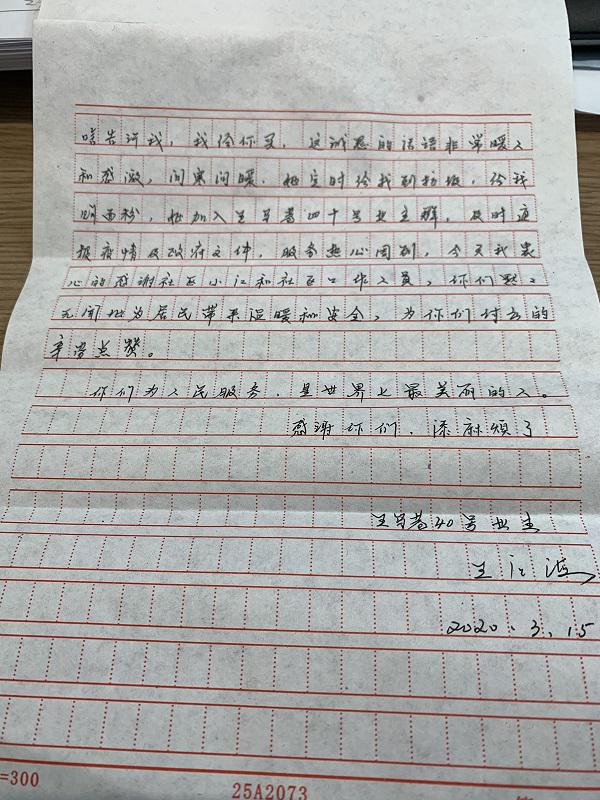 啥告诉我，我给你买，这诚恳的话语非常暖人
和感激，问寒问暖，她定时给我到物报，给我
她加入王马巷四十号业主群，及时通
报疫情及政府文件，服务热心周到，今天我衷
心的感谢社区小江和社区工作人员，你们默默
无闻地为居民带来温暖和安全，为你们付出的
辛劳点赞。
你们为人民服务，是世界上最美丽的人。
感谢你们，添麻烦了
王马巷40号业主
王
2020.3.15
=300
25A2073